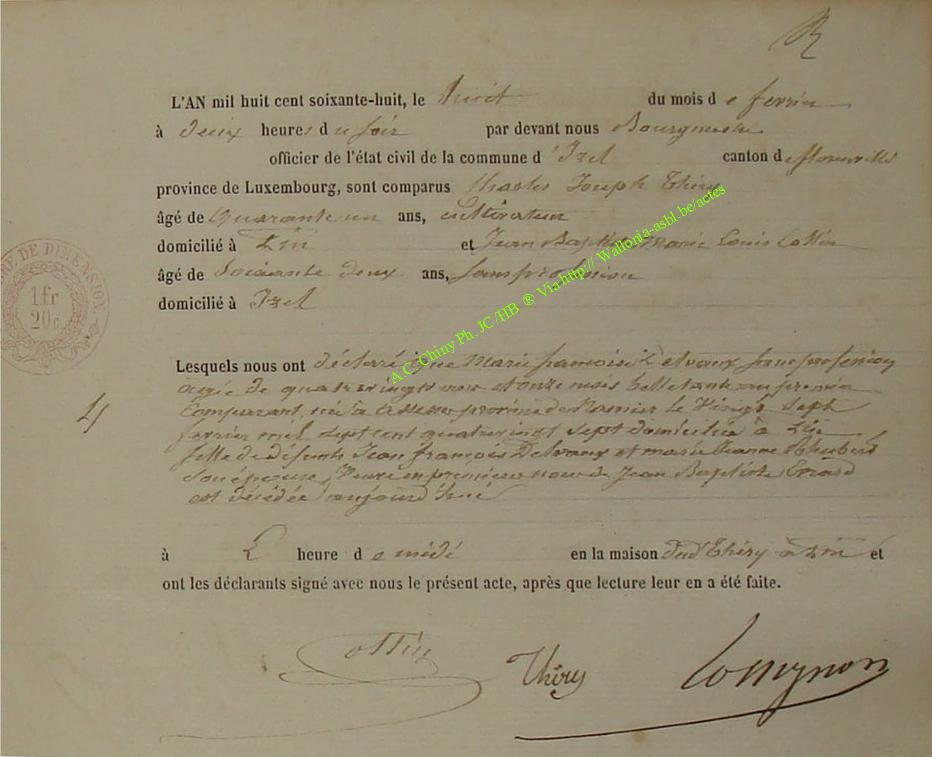 L'AN mil huit cent soixante-huit, le huit du mois de fevrier
à deux heures du soir par devant nous Bourgmestre
officier de l'état civil de la commune d'Izel canton de florenville
province de Luxembourg, sont comparus Charles Joseph Thiry
âgé de quarante un ans, cultivateur
domicilié à et Jean Baptiste Marie Louis Cottin
âgé de Soixante deux ans, sans profession
domicilié à Izel
Lesquels nous ont déclaré que Marie françoise Delvaux sans profession
agée de quatre vingt ans et onze mois belle tante au premier
Comparant, née à province de Namur le Vingt sept
fevrier mil sept cent quatre vingt sept domiciliée à
fille de defunts Jean françois Delvaux et marie Jeanne
son épouse, Veuve en premiere noce de Jean Baptiste Evrard
est décédée aujourd'hui
à heure de midi en la maison dud Thiry à et
ont les déclarants signé avec nous le présent acte, après que lecture leur en a été faite.
Cottin Thiry
RE DE DIMENSION
1 fr
20 c
A.C. Chiny Ph. JC /HB ® Via http// Wallonia-asbl.be/actes